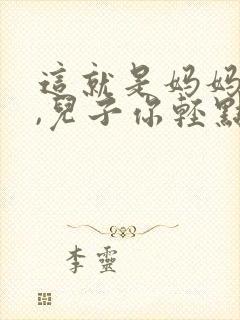 這就是妈妈
,兒子你輕點
李靈